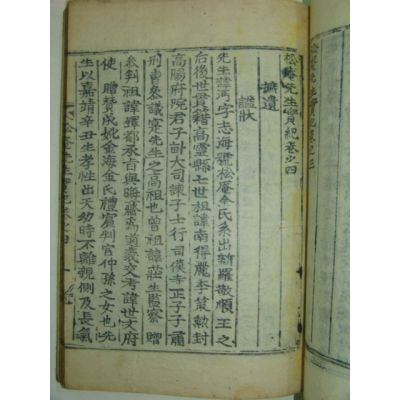 松庵先生實紀卷之四
摭遺
謚狀
先生諱沔字志海號松庵金氏系出新羅敬順王之
后後世貫籍高靈縣七世祖諱南得麗季策勳封
高陽府院君子訥大司諫子士行司僕寺正子子肅
刑曹參議寔先生之高祖也曾祖諱莊生監察贈
參判祖諱鐸都承旨與晦齋爲道義交考諱世文府
使贈贊成妣金海金氏判官仲孫之女也先
生以嘉靖辛丑生孝性出天幼時不離親側及長氣